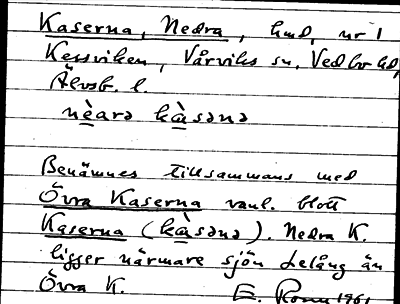 Kaserna, Nedra, hmd, nr 1
Kessviken, Vårviks sn, Vedbo hd,
Älvsb. l.
nèarə kàsənə
Benämnes tillsammans med
Övra Kaserna vanl. blott
Kaserna (kàsənə). Nedra K.
ligger närmare sjön Lelång än
Övra K. E. 1961